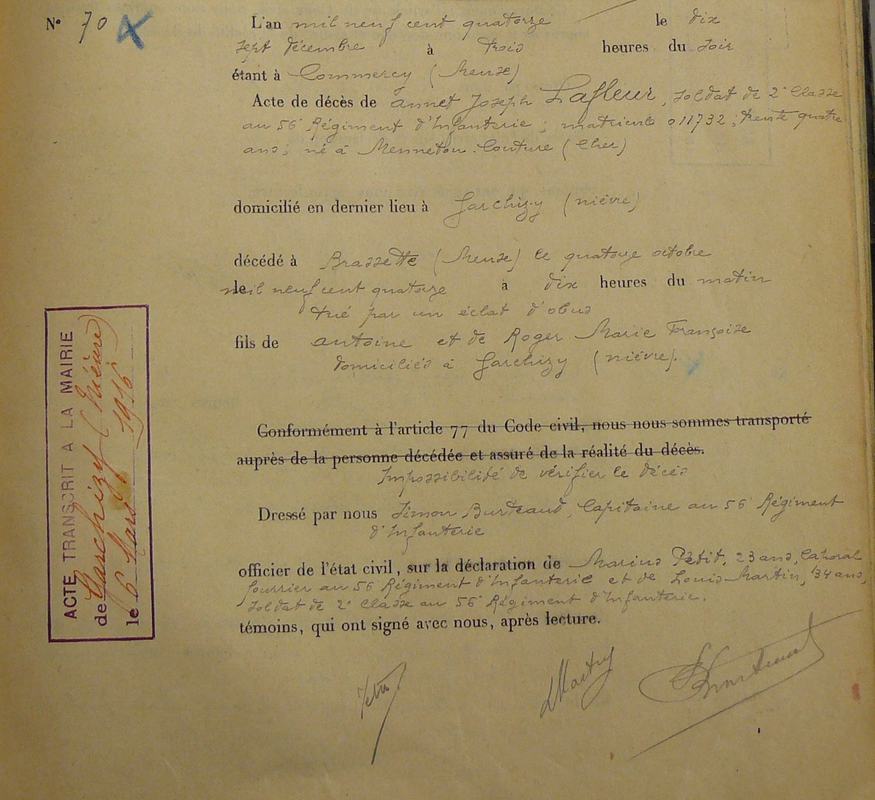 N° 70
L'an mil neuf cent quatorze le dix
sept décembre à trois heures du soir
étant à Commercy (Meuse)
Acte de décès de Annet Joseph Lafleur, soldat de 2e Classe
au 56e Régiment d'Infanterie; matricule 011732; trente quatre
ans; né à Menneton-Couture (Cher)
domicilié en dernier lieu à Garchizy (Nièvre)
décédé à Brassette (Meuse) le quatorze octobre
le mil neuf cent quatorze à dix heures du matin
tué par un éclat d'obus
fils de Antoine et de Roger Marie Françoise
domiciliés à Garchizy (Nièvre).
Conformément à l'article 77 du Code civil, nous nous sommes transporté
auprès de la personne décédée et assuré de la réalité du décès.
Impossibilité de vérifier le décès
Dressé par nous Simon Burteaud, Capitaine au 56e Régiment
d'Infanterie
officier de l'état civil, sur la déclaration de Marius Petit, 23 ans, Caporal
fourrier au 56 Régiment d'Infanterie et de Louis Martin, 34 ans,
soldat de 2e Classe au 56e Régiment d'Infanterie.
témoins, qui ont signé avec nous, après lecture.
ACTE TRANSCRIT A LA MAIRIE
de Garchizy (Nièvre)
le 6 Mars 1916